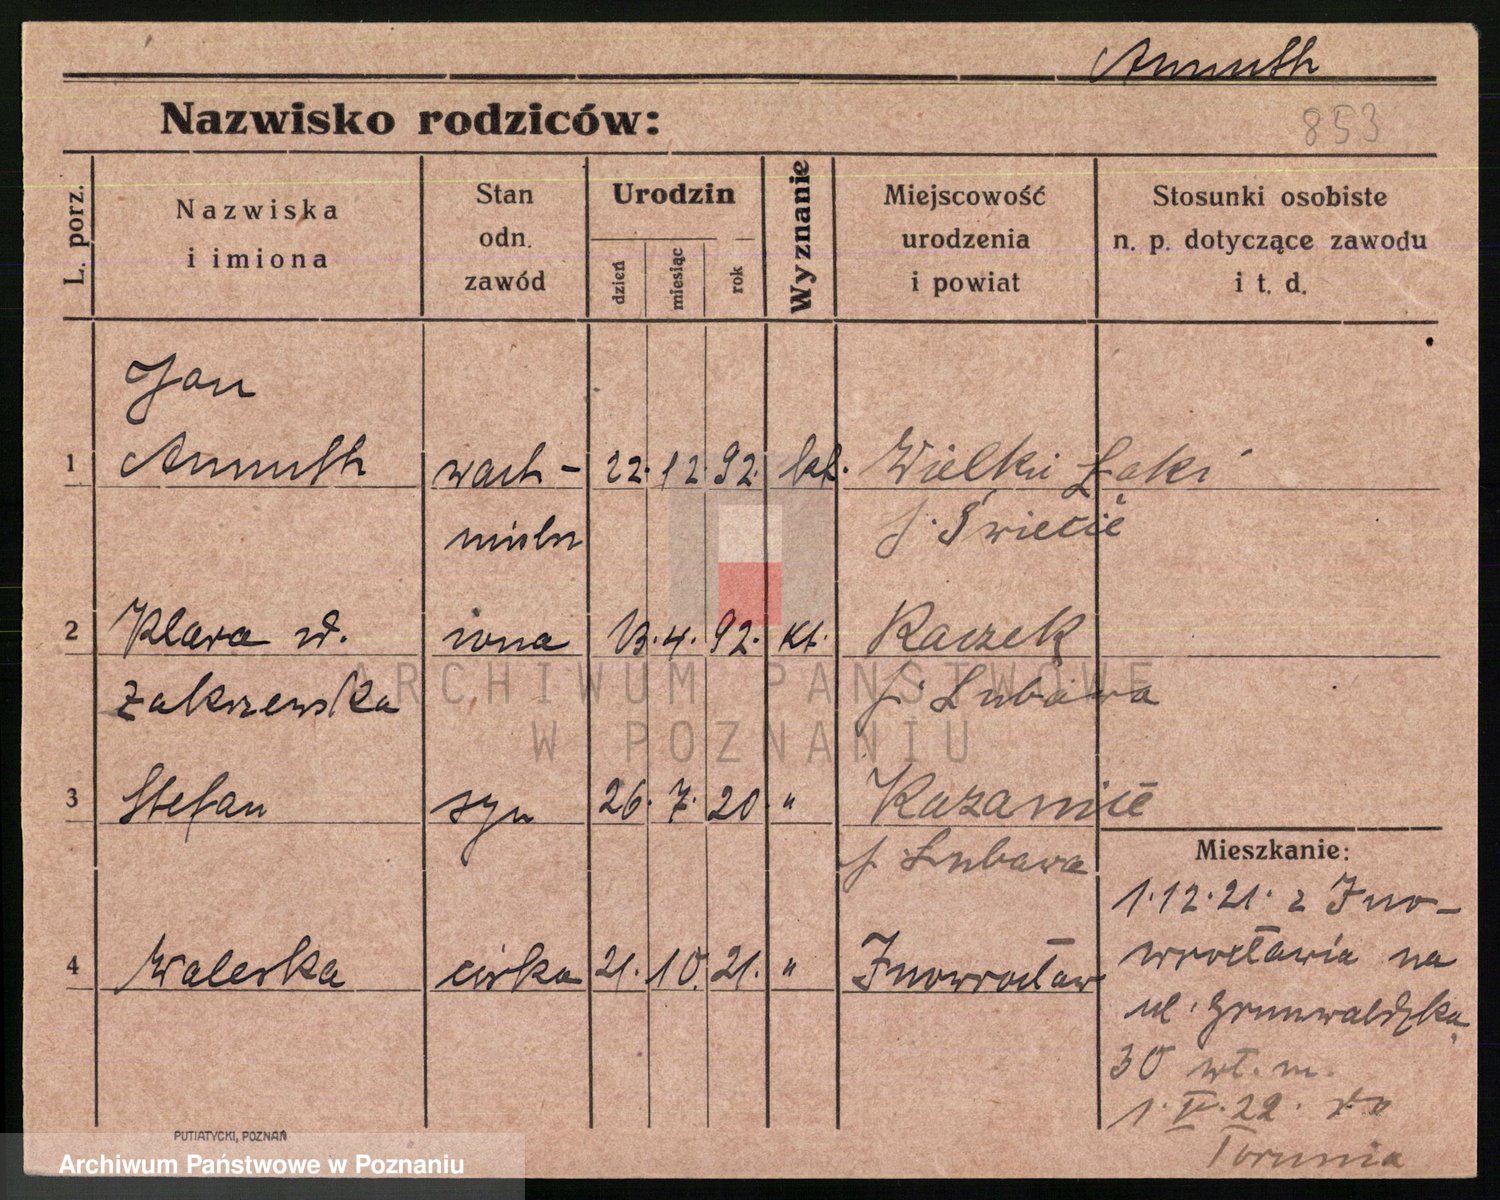 Anmuth
Nazwisko rodziców:
853
L. porz.
Nazwiska
i imiona
Stan
odn.
zawód
Urodzin
dzień
miesiąc
rok
Wyznanie
Miejscowość
urodzenia
i powiat
Stosunki osobiste
n. p. dotyczące zawodu
i t. d.
Jan
1 Anmuth wach- 22. 12. 92. kat. Wielki Łąki
p. Świecie
2 Klara d. żona 13. 4. 92. kt. Raczek
Zakrzewska p. Lubawa
3 Stefan syn 26. 7. 20 " Kazanice
p. Lubawa
4 Waleska córka 21. 10. 21. " Inowrocław
Mieszkanie:
1.12.21. z Ino-
wrocławia na
ul. Grunwaldzka
30 wł. m.
1. V. 22. do
Torunia
ARCHIWUM PAŃSTWOWE
W POZNANIU
PUTIATYCKI, POZNAŃ
Archiwum Państwowe w Poznaniu